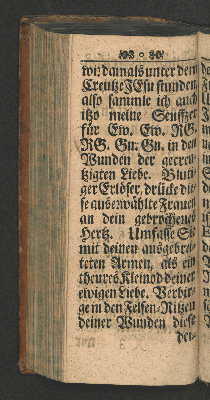 wir damals unter dem
Creutze JEsu stunden
also sammle ich auch
itzo meine Seufftzer
für Ew. Ew. RG.
RG. Gn. Gn. in den
Wunden der gecreu-
tzigten Liebe. Bluti-
ger Erlöser, drücke die-
se auserwählte Frauen
an dein gebrochenes
Hertz. Umfasse Sie
mit deinen ausgebrei-
teten Armen, als ein
theures Kleinod deiner
ewigen Liebe. Verbir-
ge in den Felsen-Ritzen
deiner Wunden diese
der-